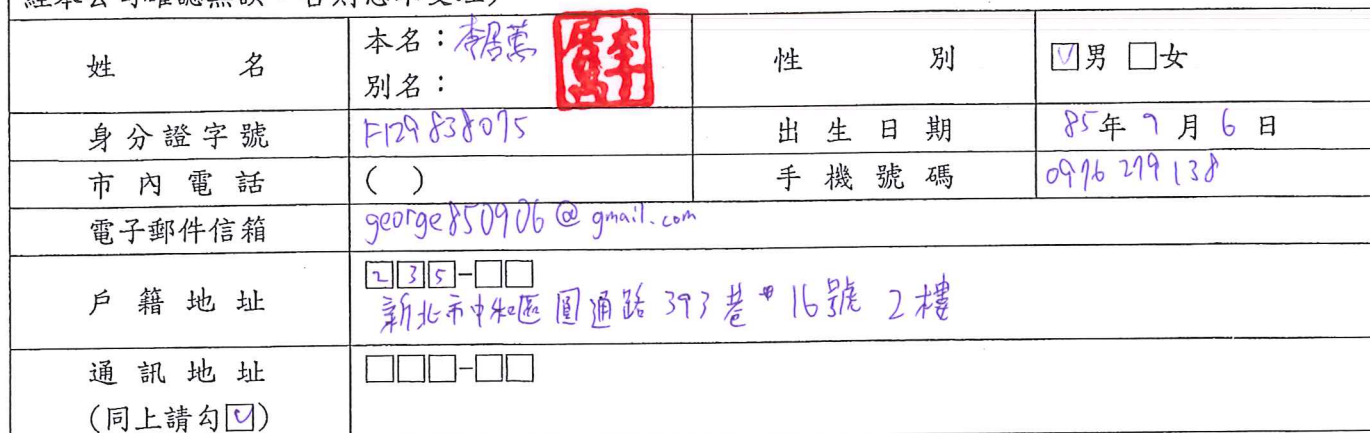 經本公司確認無誤，否則恕不受理）
姓 名 本名：李居蔿 性 別 ☑男 □女
別名：
身分證字號 F129838075 出生日期 85年9月6日
市內電話 ( ) 手機號碼 0976279138
電子郵件信箱 george850906@gmail.com
戶籍地址 235-□□
新北市中和區圓通路393巷16號2樓
通訊地址 □□□-□□
(同上請勾☑)